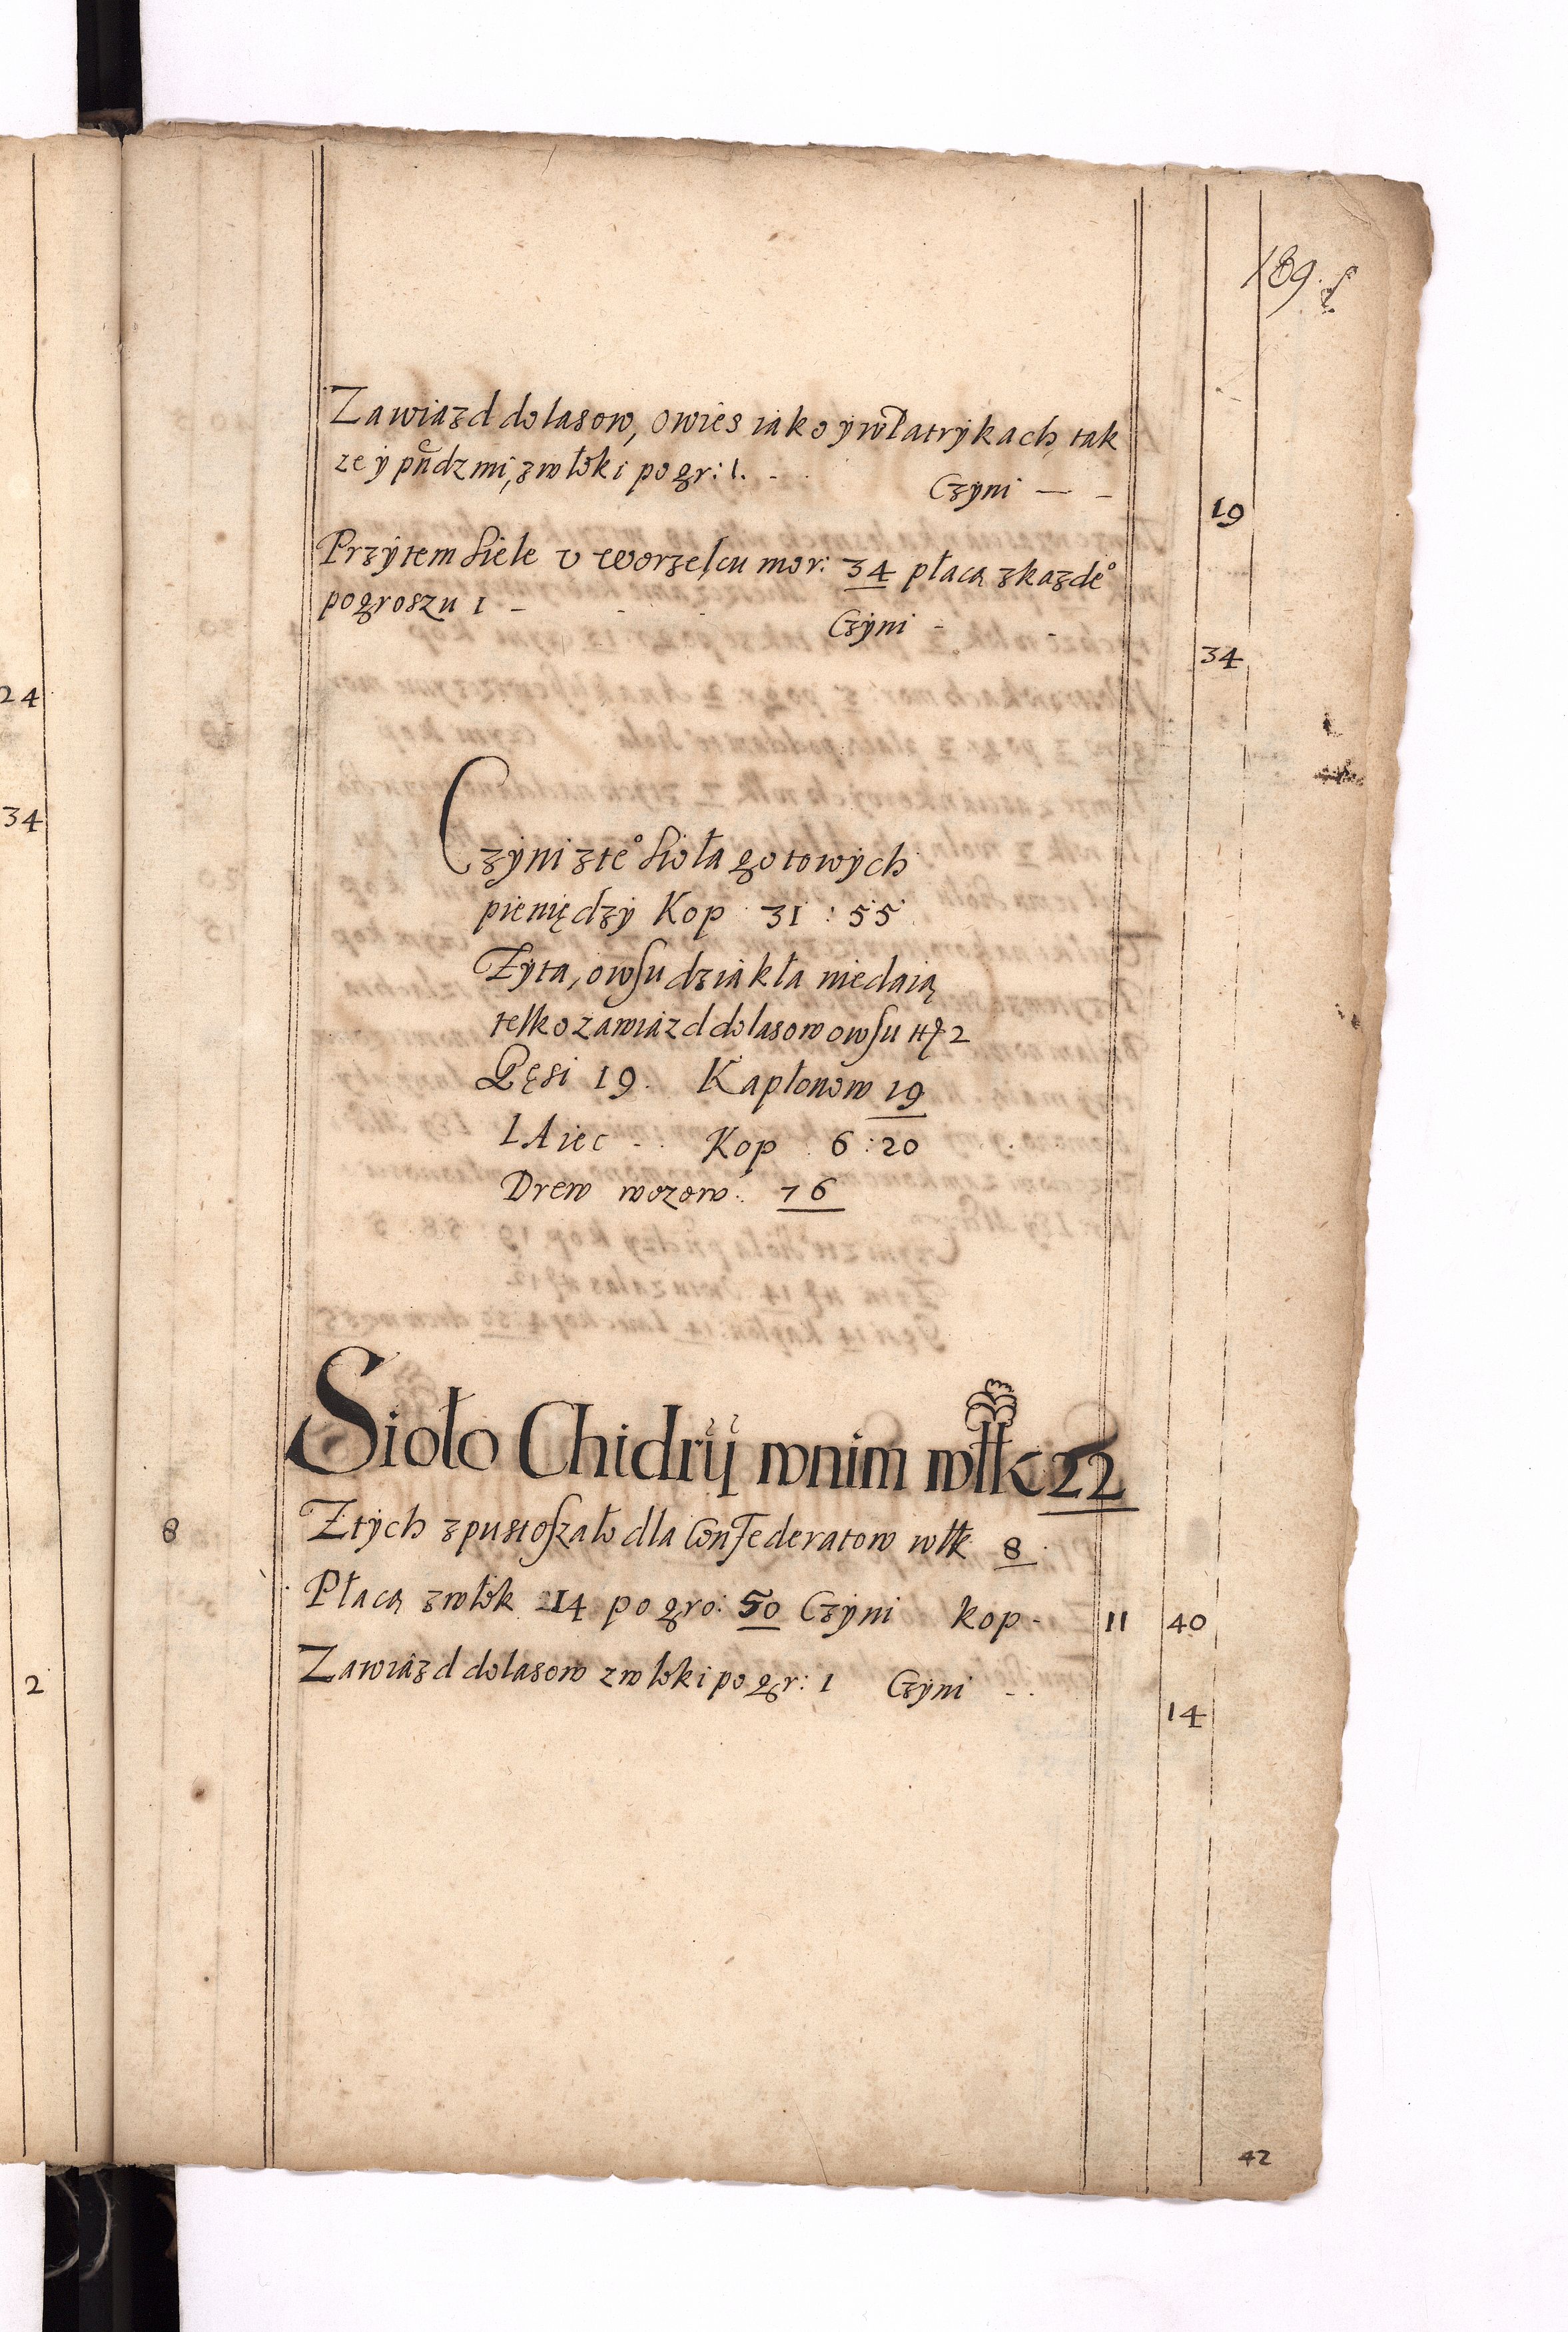 189.
Zawiazd do lasow, owies iako y w Patrykach, tak
ze y pndzmi, z włoki po gr: 1. Czyni — — 19
Przy tem siele v Worzelcu mor: 34 płacą z kazdeº
po groszu 1 - Czyni - 34
24
34
Czyni z teº sioła gotowych
pieniędzy Kop 31 : 55
Zyta, owsu dziakła niedaią
telko zawiazd do lasow owsu 2
Gęsi 19. Kapłonow 19
IAiec - . Kop 6 : 20
Drew wozow: 76
Sioło Chidry w nim włk 22
8 Z tych zpustoszało dla Confederatow włk 8
Płacą z włok 14 po gro: 50 Czyni kop - 11 40
Zawiazd do lasow z włoki po gr: 1 Czyni - . 14
2
42